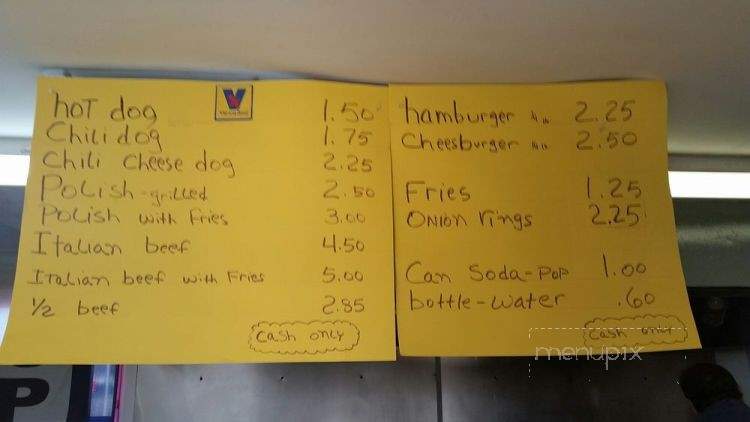 hot dog 1.50
Chili dog 1.75
Chili Cheese dog 2.25
Polish-grilled 2.50
Polish with Fries 3.00
Italian beef 4.50
Italian beef with Fries 5.00
1/2 beef 2.85
Cash only
hamburger 1/4 lb 2.25
Cheesburger 1/4 lb 2.50
Fries 1.25
Onion rings 2.25
Can Soda-Pop 1.00
bottle-water .60
Cash only
menupix
P